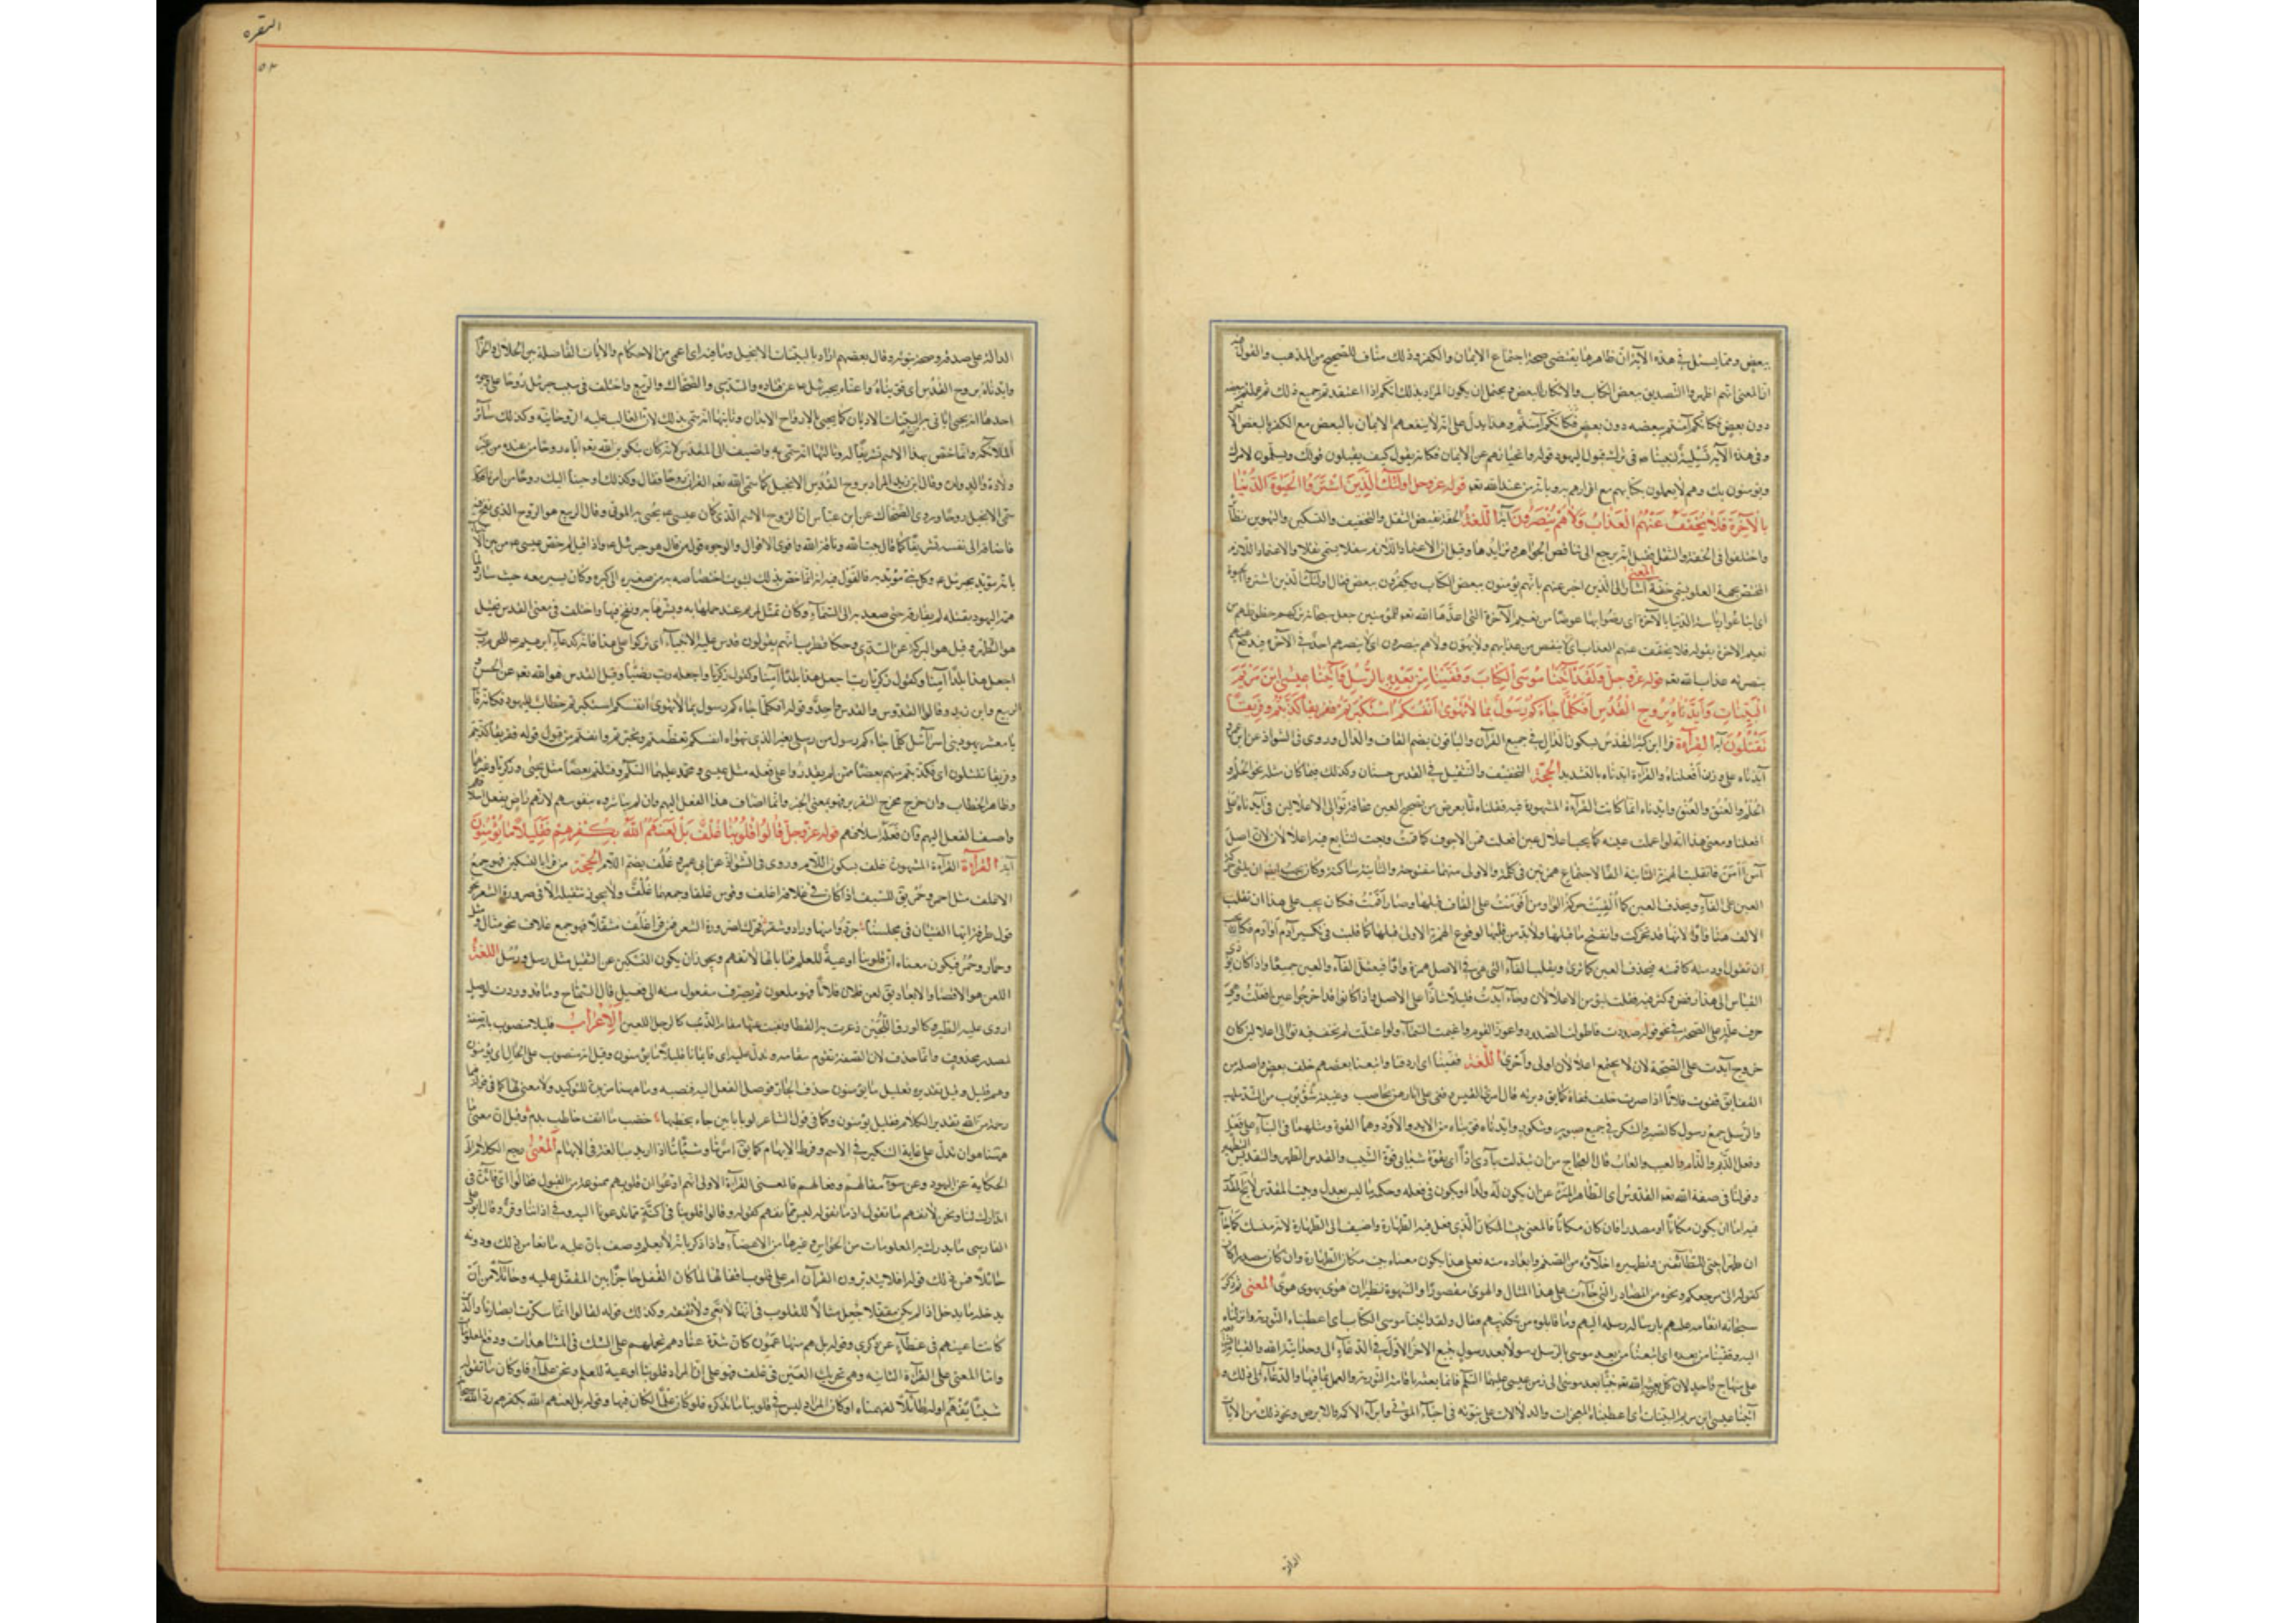 ببعض ومما يسئل في هذه الآية ان ظاهرها يقتضى صحة اجتماع الايمان والكفر وذلك مناف للصحيح من المذهب والقول
ان المعنى انهم اظهروا التصديق ببعض الكتاب والانكار للبعض ويحتمل ان يكون المراد بذلك انكم اذا اعتقدتم جميع ذلك ثم عملتم ببعضه
دون بعض فكانكم آمنتم ببعضه دون بعض وهذا يدل على انه لا ينفعهم الايمان بالبعض مع الكفر بالبعض الآخر
وفي هذه الآية تسلية لنبينا في ترك قبول اليهود قوله وانحيازهم عن الايمان فكانه يقول كيف يقبلون قولك ويسلمون لامرك
ويؤمنون بك وهم لا يعملون بكتابهم مع اقرارهم به وبانه من عند الله تعه قوله عز وجل اولئك الَّذِينَ اشْتَرَوُا الْحَيٰوةَ الدُّنْيٰا
بِالْآخِرَةِ فَلٰا يُخَفَّفُ عَنْهُمُ الْعَذٰابُ وَلٰا هُمْ يُنْصَرُونَ آية اللغة الخفة نقيض الثقل والتخفيف والتسكين والتهوين نظائر
واختلفوا في الخفة والثقل فقيل انه يرجع الى تناقص الجواهر وتزايدها وقيل ان الاعتماد اللازم سفلا يسمى ثقلا والاعتماد اللازم
المختص بجهة العلو يسمى خفة المعنى اشار الى الذين اخبر عنهم بانهم يؤمنون ببعض الكتاب ويكفرون ببعض فقال اولئك الذين اشتروا الحيوة
اى ابتاعوا رياسة الدنيا بالآخرة اى رضوا بها عوضا من نعيم الآخرة التى اعدها الله تعه للمؤمنين جعل سبحانه تركهم حظوظهم من
نعيم الآخرة بقوله فلا يخفف عنهم العذاب اى لا ينقص من عذابهم ولا يهون ولا هم ينصرون اى لا ينصرهم احد في الآخرة
بنصرته عذاب الله تعه قوله عز وجل وَلَقَدْ آتَيْنٰا مُوسَى الْكِتٰابَ وَقَفَّيْنٰا مِنْ بَعْدِهِ بِالرُّسُلِ وَآتَيْنٰا عِيسَى ابْنَ مَرْيَمَ
الْبَيِّنٰاتِ وَأَيَّدْنٰاهُ بِرُوحِ الْقُدُسِ أَفَكُلَّمٰا جٰاءَكُمْ رَسُولٌ بِمٰا لٰا تَهْوىٰ أَنْفُسُكُمُ اسْتَكْبَرْتُمْ فَفَرِيقًا كَذَّبْتُمْ وَفَرِيقًا
تَقْتُلُونَ آية القرآءة قرا ابن كثير القدس بسكون الدال في جميع القرآن والباقون بضم القاف والدال وروى في الشواذ عن ابى عمرو
آيدناه على وزن افعلناه والقرآءة ايدناه بالتشديد الحجة التخفيف والتثقيل في القدس حسنان وكذلك فيما كان مثله نحو الحلم و
الحلم والعنق والعنق وايدناه انما كانت القرآءة المشهورة فيه فعلناه لما يعرض من تصحيح العين مخافة توالى الاعلالين في آيدناه على
افعلنا
آسن أأسن فانقلبت الهمزة الثانية الفا لاجتماع همزتين في كلمة والاولى منهما مفتوحة والثانية ساكنة وكان يجب ايضا ان يلقى حركة
العين على الفآء ويحذف العين كما القيت حركة الواو من اقومت على القاف قبلها وصار اقمت فكان يجب على هذا ان تقلب
الالف هنا واوا لانها قد تحركت وانفتح ما قبلها ولا بد من قلبها لوقوع الهمزة الاولى قبلها كما قلبت في تكسير آدم اوادم
القياس الى هذا رفض وكثر فيه فعلت ليؤمن الاعلالان وجآء آيدت قليلا شاذا على الاصل واذا كانوا قد اخرجوا عين افعلت وهي
حرف علة على الصحة في نحو قوله صددت فاطولت الصدود واعوز القوم واغيمت السمآء ولو اعلت لم يخف فيه توالى اعلالين كان
خروج آيدت على الصحة لان لا يجتمع اعلالان اولى واحرى اللغة قفينا اى اردفنا واتبعنا بعضهم خلف بعض واصله من
القفا يق قفوت فلانا اذا صرت خلف قفاه كما يق دبرته قال امرؤ القيس وقفى على آثارهن بحاصب وغيبة شؤبوب من الشد ملهب
والرسل جمع رسول كالصبر والشكر في جميع صبور وشكور وايدناه قويناه من الايد والآد وهما القوة ومثلهما في البنآء على فعل
وفعل الذيم والذام والعيب والعاب قال العجاج من ان تبدلت بآدى آدا اى بقوة شبابى قوة الشيب والقدس الطهر والتقديس التطهير
وقولنا في صفة الله تعه القدوس اى الطاهر المنزه عن ان يكون له ولد او يكون في فعله وحكمه ما ليس بعدل وبيت المقدس
فيه اما ان يكون مكانا او مصدرا فان كان مكانا فالمعنى بيت المكان الذى فعل فيه الطهارة واضيف الى الطهارة لانه منسك كما جآء
ان طهرا بيتى للطآئفين وتطهيره اخلآؤه من الصنم وابعاده منه فعلى هذا يكون معناه بيت مكان الطهارة وان كان مصدرا كان
كقوله الى مرجعكم ونحوه من المصادر التى جآءت على هذا المثال والهوى مقصورا والشهوة نظيران هوى يهوى هوى المعنى ثم ذكر
سبحانه انعامه عليهم بارساله رسله اليهم وما قابلوه من تكذيبهم فقال ولقد آتينا موسى الكتاب اى اعطيناه التورية وانزلناه
اليه وقفينا من بعده اى اتبعنا من بعد موسى بالرسل رسولا بعد رسول يتبع الآخر الاول في الدعآء الى وحدانية الله والقيام
على منهاج واحد لان كل من بعثه الله تعه نبيا بعد موسى الى زمن عيسى عليهما السلم فانما بعثه باقامة التورية والعمل بما فيها والدعآء الى ذلك و
آتينا عيسى ابن مريم البينات اى اعطيناه المعجزات والدلالات على نبوته في احيآء الموتى وابرآء الاكمه والابرص ونحو ذلك من الآيات
الدالة
البقره
٥٢
الدالة على صدقه وصحة نبوته وقال بعضهم اراد بالبينات الانجيل وما فيه اى اعم من الاحكام والآيات الفاصلة بين الحلال والحرام
وايدناه بروح القدس اى قويناه واعناه بجبرئيل عن قتادة والسدى والضحاك والربيع واختلف في سبب جبرئيل روحا على وجوه
احدها انه يحيى بما ياتى به من البينات الاديان كما يحيى بالارواح الابدان وثانيها انه سمى بذلك لان الغالب عليه الروحانية وكذلك سائر
الملآئكة وانما خص بهذا الاسم تشريفا له وثالثها انه سمى به واضيف الى القدس لانه كان بتكوين الله تعه اياه روحا من عنده من غير
ولادة والد ولده وقال ابن زيد المراد بروح القدس الانجيل كما سمى الله تعه القرآن روحا فقال وكذلك اوحينا اليك روحا من امرنا فكذا
سمى الانجيل روحا وروى الضحاك عن ابن عباس ان الروح الاسم الذى كان عيسى يحيى به الموتى وقال الربيع هو الروح الذى نفخ فيه
فاضافه الى نفسه تشريفا كما قال بيت الله وناقة الله واقوى الاقوال والوجوه قول من قال هو جبرئيل واذا قيل لم خص عيسى من بين الانبيآء
بانه مؤيد بجبرئيل وكل نبى مؤيد به فالقول فيه انه انما خص بذلك لثبوت اختصاصه به من صغره الى كبره وكان يسير معه حيث سار ولما
هم اليهود بقتله لم يفارقه حتى صعد به الى السمآء وكان تمثل لمريم عند حملها به وبشرها به ونفخ فيها واختلف في معنى القدس فقيل
هو الطهر وقيل هو البركة عن السدى وحكى قطرب انهم يقولون قدس عليه الانبيآء اى بركوا وعلى هذا فانه كدعآء ابرهيم للحرم رب
اجعل هذا بلدا آمنا وكقول زكريا واجعله رب رضيا وقيل القدس هو الله تعه عن الحسن و
الربيع وابن زيد وقالوا القدوس والقدس واحد وقوله افكلما جاءكم رسول بما لا تهوى انفسكم استكبرتم خطاب لليهود فكانه قال
يا معشر يهود بنى اسرآئيل كلما جاءكم رسول من رسلى بغير الذى تهواه انفسكم تعظمتم وتجبرتم وانفتم من قبول قوله ففريقا كذبتم
وفريقا تقتلون اى فكذبتم منهم بعضا ممن لم يقدروا على قتله مثل عيسى ومحمد عليهما السلم وقتلتم بعضا مثل يحيى وزكريا وغيرهما
وظاهر الخطاب وان خرج مخرج التقرير فهو بمعنى الخبر وانما اضاف هذا الفعل اليهم وان لم يباشروه بنفوسهم لانهم رضوا بفعل اسلافهم
واضيف الفعل اليهم وان فعله اسلافهم قوله عز وجل وَقٰالُوا قُلُوبُنٰا غُلْفٌ بَلْ لَعَنَهُمُ اللّٰهُ بِكُفْرِهِمْ فَقَلِيلًا مٰا يُؤْمِنُونَ
آية القرآءة القرآءة المشهورة غلف بسكون اللام وروى في الشواذ عن ابى عمرو غلف بضم اللام الحجة من قرا بالتسكين فهو جمع
الاغلف مثل احمر وحمر يق للسيف اذا كان في غلاف اغلف وقوس غلفا وجمعها غلف ولا يجوز تثقيله الا في ضرورة الشعر نحو
قول طرفة ايها الفتيان في مجلسنا جردوا منها ورادا وشقر فحرك لضرورة الشعر فمن قرا غلف مثقلا فهو جمع غلاف نحو مثال ومثل
وحمار وحمر فيكون معناه ان قلوبنا اوعية للعلم فما بالها لا تفهم ويجوز ان يكون التسكين عن التثقيل مثل رسل ورسل اللغة
اللعن هو الاقصا والابعاد يق لعن فلان فلانا فهو ملعون ثم يصرف مفعول منه الى فعيل قال الشماخ ومآء قد وردت لوصل
اروى عليه الطير كالورق اللجين ذعرت به القطا ونفيت عنه مقام الذئب كالرجل اللعين الإعراب فقليلا منصوب بانه صفة
لمصدر محذوف وانما حذف لان الصفة تقوم مقامه وتدل عليه اى فايمانا قليلا ما يؤمنون وقيل انه منصوب على الحال اى يؤمنون
وهم قليل وقيل تقديره فبقليل ما يؤمنون حذف الجار فوصل الفعل اليه فنصبه وما ههنا مزيدة للتوكيد ولا معنى لها كما في قوله فبما
رحمة من الله تقدير الكلام فقليل يؤمنون وكما في قول الشاعر لو بابانين جاء يخطبها خضب ما انف خاطب بدم وقيل ان معنى ما
ههنا هو ان تدل على غاية التنكير في الاسم وفرط الابهام كما يق امر ما وشئ ما اذا اريد المبالغة في الابهام المعنى رجع الكلام الى
الحكاية عن اليهود وعن سوء مقالهم وفعالهم فالمعنى القرآءة الاولى انهم ادعوا ان قلوبهم ممنوعة من القبول فقالوا اى فآئدة في
انذارك لنا ونحن لا نفهم ما تقول اذ ما تقوله ليس مما يفهم كقوله وقالوا قلوبنا في اكنة مما تدعونا اليه وفي آذاننا وقر وقال ابو على
الفارسى ما يدرك به المعلومات من الحواس وغيرها من الاعضآء اذا ذكر بانه لا يعلم وصف بان عليه مانعا من ذلك ودونه
حائلا فمن ذلك قوله افلا يتدبرون القرآن ام على قلوب اقفالها لما كان القفل حاجزا بين المقفل عليه وحائلا من ان
يدخله ما يدخل اذا لم يكن مقفلا جعل مثالا للقلوب في انها لا تعى ولا تفقه وكذلك قوله لقالوا انما سكرت ابصارنا والذين
كانت اعينهم في غطآء عن ذكرى وقوله بل هم منها عمون كان شدة عنادهم تحملهم على الشك في المشاهدات ودفع المعلومات
واما المعنى على القرآءة الثانية وهى تحريك العين في غلف فهو على ان المراد قلوبنا اوعية للعلم ونحن علمآء فلو كان ما تقوله
شيئا يفهم او له طآئل لفهمناه او كان المراد ليس في قلوبنا ما تذكره فلو كان علما لكان فيها وقوله بل لعنهم الله بكفرهم رد الله